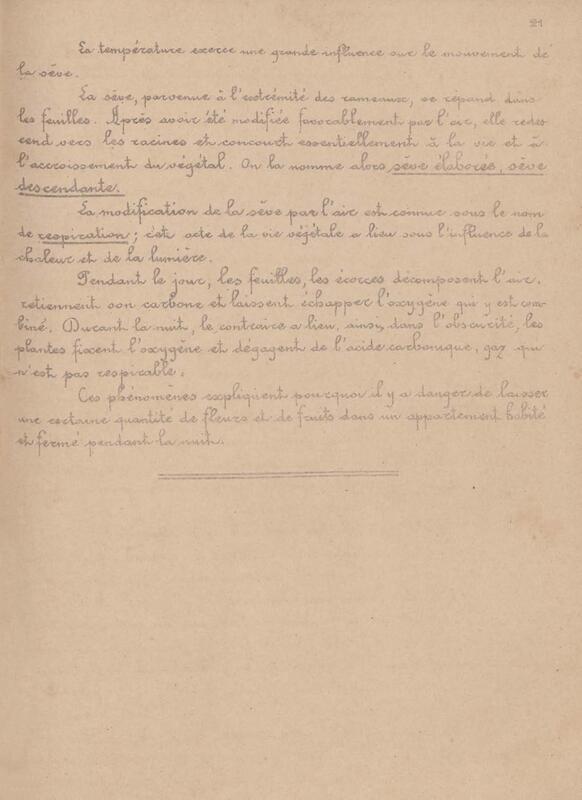 21
La température exerce une grande influence sur le mouvement de
la sève.
La sève, parvenue à l'extrémité des rameaux, se répand dans
les feuilles. Après avoir été modifiée favorablement par l'air, elle redes-
cend vers les racines et concourt essentiellement à la vie et à
l'accroissement du végétal. On la nomme alors sève élaborée, sève
descendante.
La modification de la sève par l'air est connue sous le nom
de respiration; cet acte de la vie végétale a lieu sous l'influence de la
chaleur et de la lumière.
Pendant le jour, les feuilles, les écorces décomposent l'air,
retiennent son carbone et laissent échapper l'oxygène qui y est com-
biné. Durant la nuit, le contraire a lieu, ainsi, dans l'obscurité, les
plantes fixent l'oxygène et dégagent de l'acide carbonique, gaz qui
n'est pas respirable.
Ces phénomènes expliquent pourquoi il y a danger de laisser
une certaine quantité de fleurs et de fruits dans un appartement habité
et fermé pendant la nuit.